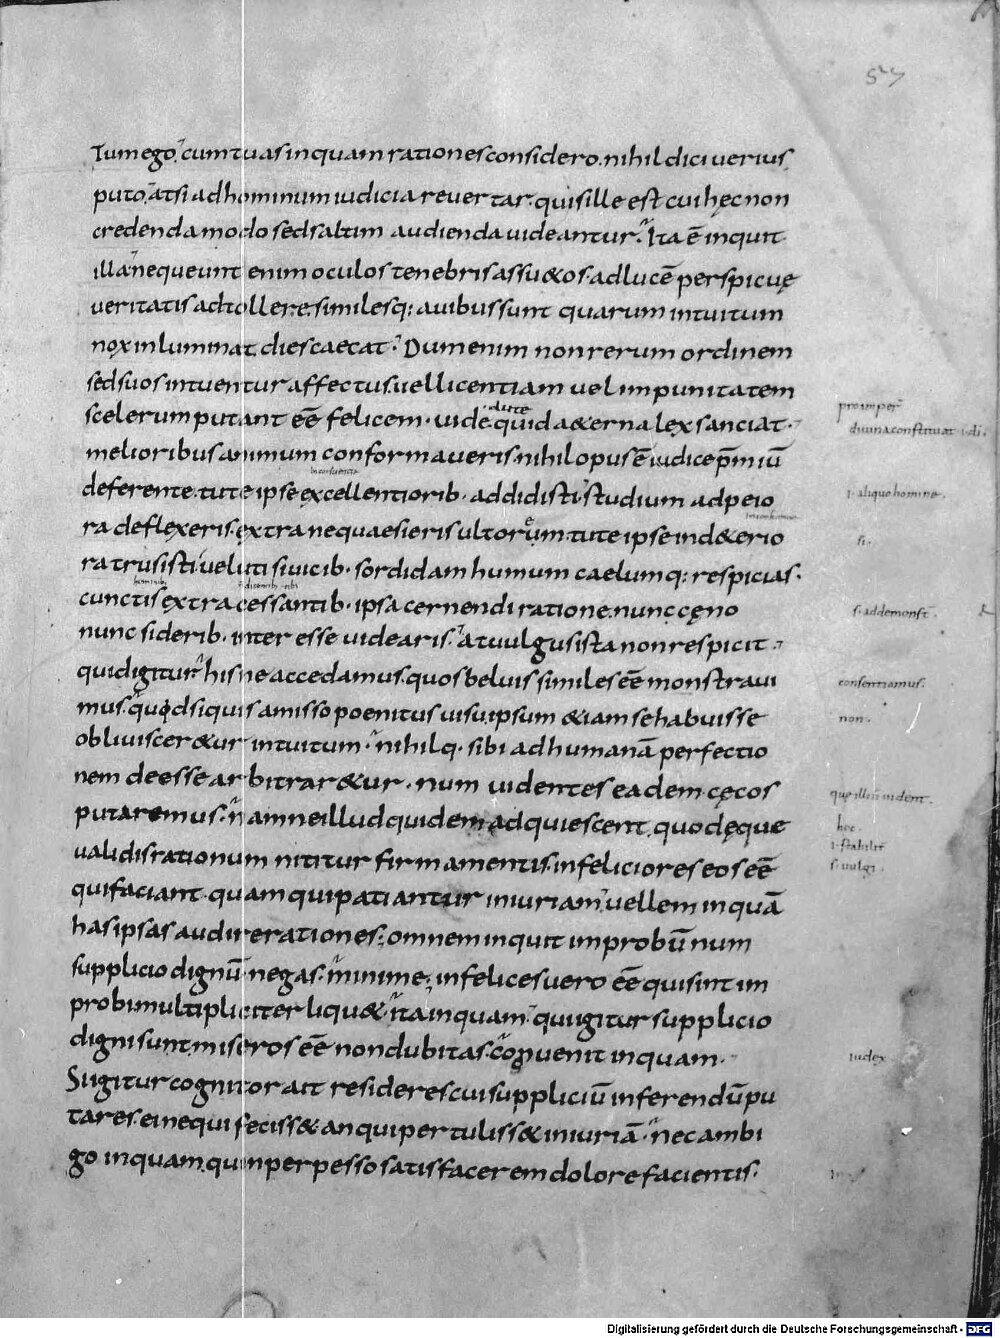 57
Tum ego cum tuas inquam rationes considero. nihil dici uerius
puto. at si ad hominum iudicia reuertar. quis ille est cui hęc non
credenda modo sed saltim audienda uideantur. Ita ē inquit
illa. nequeunt enim oculos tenebris assu&os. ad lucē perspicuę
ueritatis adtollere. similesq; auibus sunt quarum intuitum
nox inluminat dies caecat. Dum enim non rerum ordinem
sed suos intuentur affectus. uel licentiam uel impunitatem
scelerum putant eē felicem. uide quid a&erna lex sanciat.
melioribus animum conformaueris. nihil opus ē iudice p̄miū
deferente. tute ipse excellentiorib. addidisti. studium ad peio
ra deflexeris. extra ne quaesieris ultorem. tute ipse in d&erio
ra trusisti. ueluti si uicib. sordidam humum caelumq; respicias.
cunctis extra cessantib. ipsa cernendi ratione. nunc cęno
nunc siderib. inter esse uidearis. at uulgus ista non respicit.
quid igitur hisne accedamus. quos beluis similes eē monstraui
mus. quid si quis amisso poenitus uisu. ipsum &iam se habuisse
obliuiscer&ur intuitum. nihilq. sibi ad humanā perfectio
nem deesse arbitrar&ur. num uidentes eadem cęcos
putaremus. nam ne illud quidem adquiescent. quod ęque
ualidis rationum nititur firmamentis. infeliciores eos eē
qui faciant. quam qui patiantur iniuriam. uellem inquā
has ipsas audire rationes. omnem inquit improbū num
supplicio dignū negas. minime. infelices uero eē qui sint im
probi multipliciter liqu&. ita inquam. qui igitur supplicio
digni sunt. miseros eē non dubitas. conuenit inquam.
Si igitur cognitor ait resideres cui suppliciū inferendū pu
tares. ei ne qui feciss& an qui pertuliss& iniuriā. nec ambi
go inquam. quin perpesso satisfacerem dolore facientis.
diuina constituat
aliquo homine.
consentiamus.
non.
hoc.
uulgi.
iudex
Digitalisierung gefördert durch die Deutsche Forschungsgemeinschaft - DFG